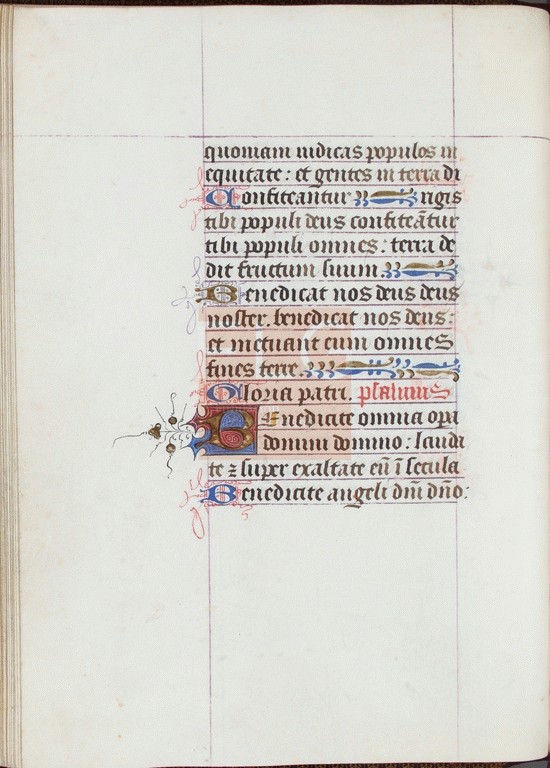 quoniam iudicas populos in
equitate: et gentes in terra di
Confiteantur rigis
tibi populi deus confiteãtur
tibi populi omnes: terra de
dit fructum suum.
Benedicat nos deus deus
noster. benedicat nos deus:
et metuant eum omnes
fines terre.
Gloria patri. psalmus
Benedicite omnia opa
domini domino: lauda
te ⁊ super exaltate eũ ĩ secula
Benedicite angeli dñi dño: